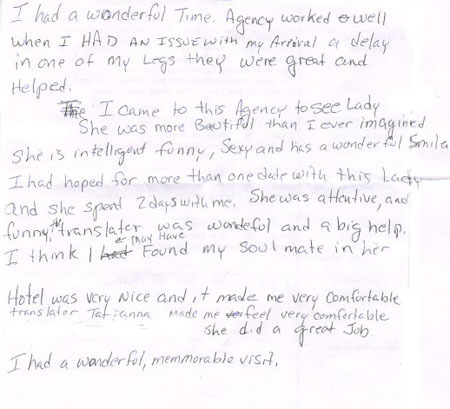 I had a wonderful Time. Agency worked well
when I HAD AN ISSUE with my Arrival a delay
in one of my Legs they were great and
Helped.
I came to this Agency to see Lady
She was more Beatiful than I ever imagined
She is intelligent funny, Sexy and has a wonderful Smile
I had hoped for more than one date with this Lady
and she spent 2 days with me. She was attentive, and
funny, the translater was wondeful and a big help.
I think I may Have Found my soul mate in her
Hotel was very Nice and it made me very comfortable
translator Tatianna made me feel very comfortable
she did a great Job.
I had a wonderful, memmorable visit.